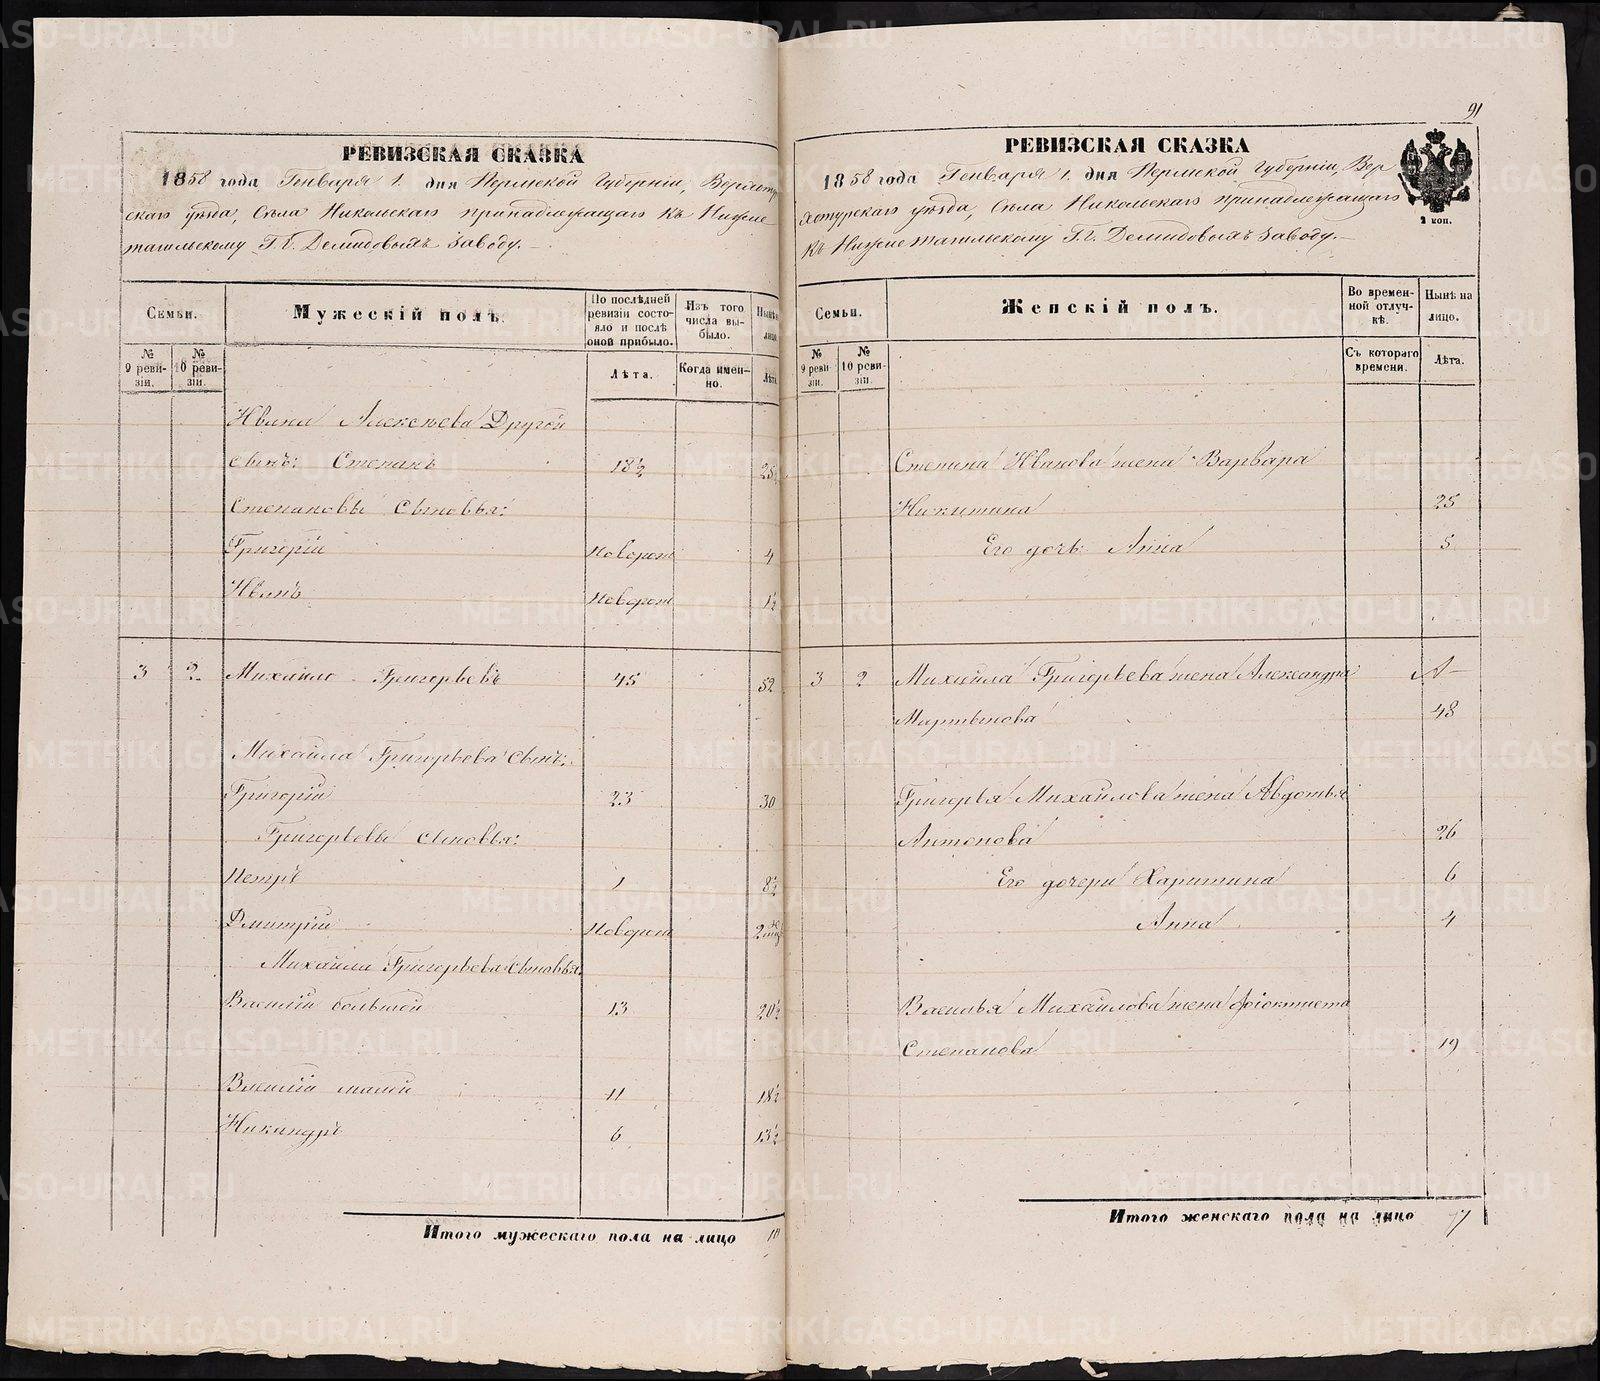 91
РЕВИЗСКАЯ СКАЗКА
1858 года Генваря 1. дня Пермской Губерніи, Верхотур
скаго уѣзда, Села Никольскаго принадлежащаго къ Нижне
тагильскому Г.г. Демидовыхъ Заводу.
Семьи.
Мужескій полъ.
По послѣдней ревизіи состояло и послѣ оной прибыло.
Изъ того числа выбыло.
Нынѣ на лицо.
№ 9 ревизіи.
№ 10 ревизіи.
Лѣта.
Когда именно.
Лѣта.
Ивана Алексѣева Другой
сынъ: Степанъ 18½ 25½
Степановы Сыновья:
Григорій Новорож 4
Иванъ Новорож 1½
3 2 Михайло Григорьевъ 45 52
Михайла Григорьева сынъ:
Григорій 23 30
Григорьевы сыновья:
Петръ 1 8½
Дмитрій Новорож 2
Михайла Григорьева сыновья:
Василій большой 13 20½
Василій малой 11 18½
Никандръ 6 13½
Итого мужескаго пола на лицо 10
РЕВИЗСКАЯ СКАЗКА
1858 года Генваря 1. дня Пермской Губерніи, Вер
хотурскаго уѣзда, Села Никольскаго принадлежащаго
къ Нижнетагильскому Г.г. Демидовыхъ Заводу.
2 коп.
Семьи.
Женскій полъ.
Во временной отлучкѣ.
Нынѣ на лицо.
№ 9 ревизіи.
№ 10 ревизіи.
Съ котораго времени.
Лѣта.
Степана Иванова жена Варвара
Никитина 25
Его дочь: Анна 5
3 2 Михайла Григорьева жена Александра
Мартынова 48
Григорья Михайлова жена Авдотья
Антонова 26
Его дочери Харитина 6
Анна 4
Василья Михайлова жена Фіоктиста
Степанова 19
Итого женскаго пола на лицо 7
METRIKI.GASO-URAL.RU